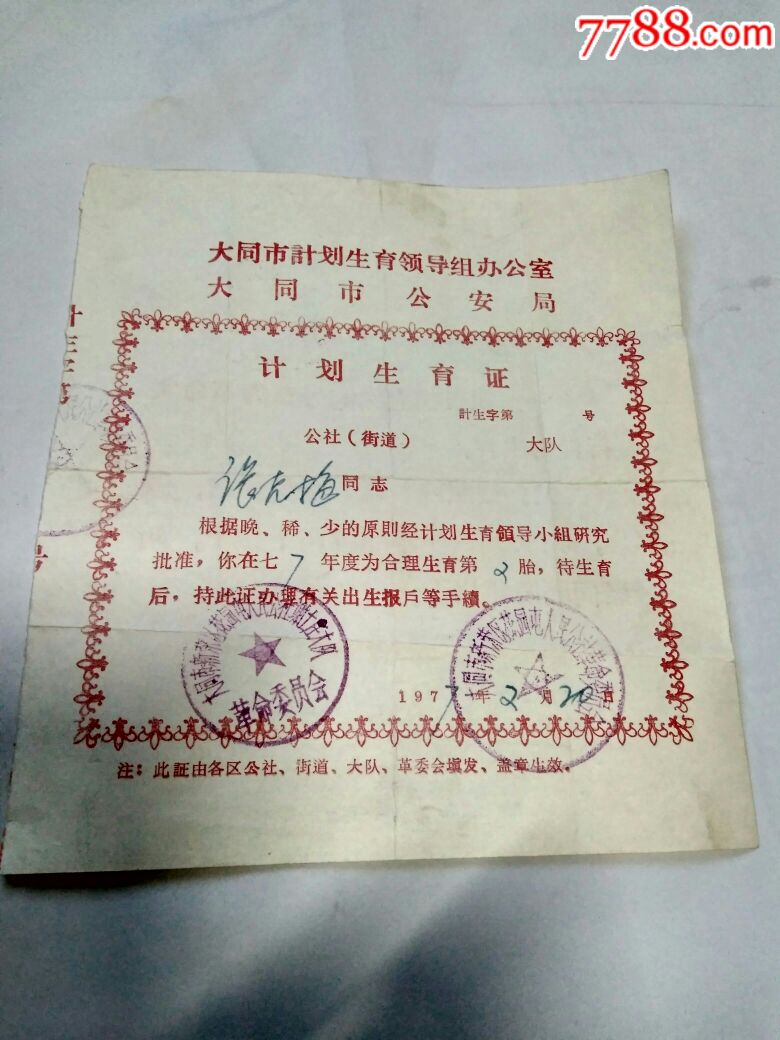 7788.com
大同市計划生育领导组办公室
大同市公安局
计划生育证
計生字第 号
公社（街道） 大队
张克梅同志
根据晚、稀、少的原則经计划生育領导小組研究
批准，你在七7年度为合理生育第2胎，待生育
后，持此证办理有关出生报戶等手續。
革命委员会
1977年2月20日
注：此証由各区公社、街道、大队、革委会填发、盖章生效。
号